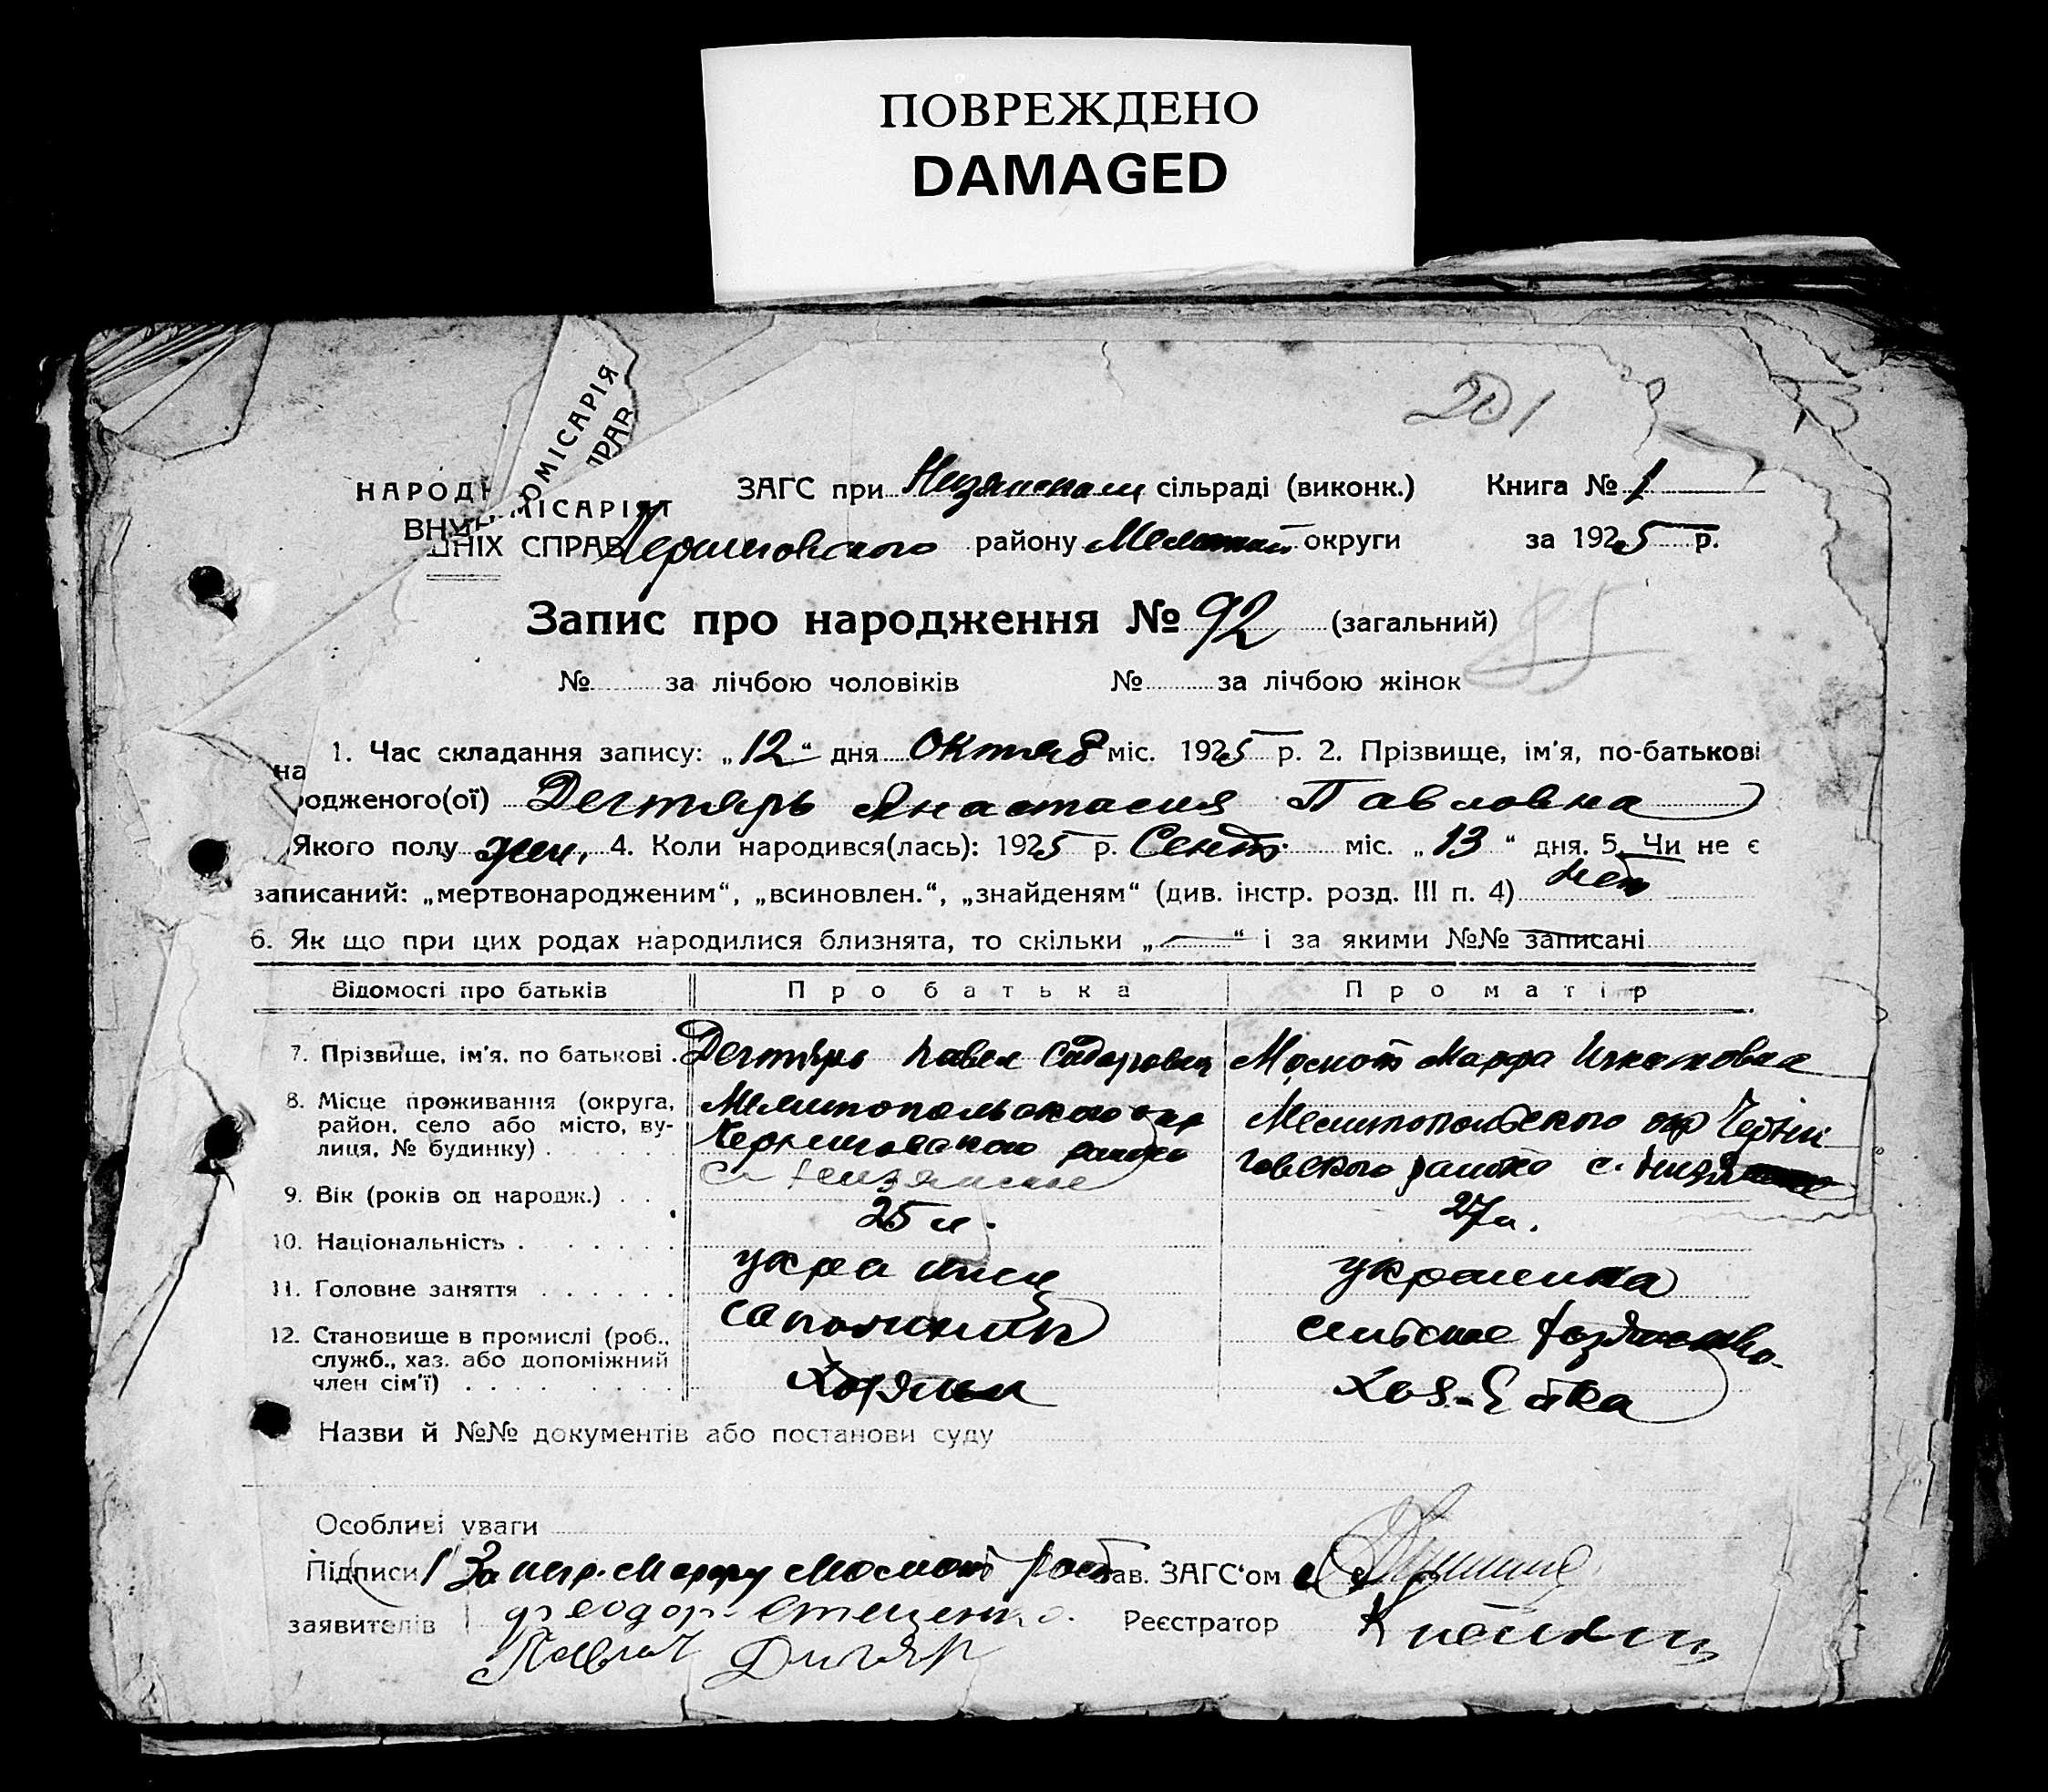 ПОВРЕЖДЕНО
DAMAGED
201
ОМІСАРІЯ
ПРАВ
НАРОДН
МІСАРІЯТ
ВНУ
ШНІХ СПРАВ
ЗАГС при Низянском сільраді (виконк.) Книга № 1
Черниговского району Мелитоп округи за 1925 р.
Запис про народження № 92 (загальний)
№ за лічбою чоловіків № за лічбою жінок
1. Час складання запису: „12“ дня Октяб міс. 1925 р. 2. Прізвище, ім'я, по-батькові
на
родженого(ої) Дегтярь Анастасия Павловна
Якого полу жен. 4. Коли народився(лась): 1925 р. Сент. міс. „13“ дня. 5. Чи не є
записаний: „мертвонародженим“, „всиновлен.“, „знайденям“ (див. інстр. розд. III п. 4) нет
6. Як що при цих родах народилися близнята, то скільки „—“ і за якими №№ записані
Відомості про батьків Про батька Про матір
7. Прізвище, ім'я, по батькові Дегтярь Павел Сидорович Момот Марфа Игнатовна
8. Місце проживання (округа, район, село або місто, вулиця, № будинку)
Мелитопольского окр
Черниговского района
с.
Мелитопольского окр Черни
говского района с.
9. Вік (років од народж.) 25 л. 27 л.
10. Національність украинец украинка
11. Головне заняття сельское хозяйство
12. Становище в промислі (роб., служб., хаз. або допоміжний член сім'ї) хозяин хоз-йка
Назви й №№ документів або постанови суду
Особливі уваги
Підписи За негр. Марфу Момот расп Зав. ЗАГС'ом
заявителів Феодор Стеценко. Реєстратор
Павло